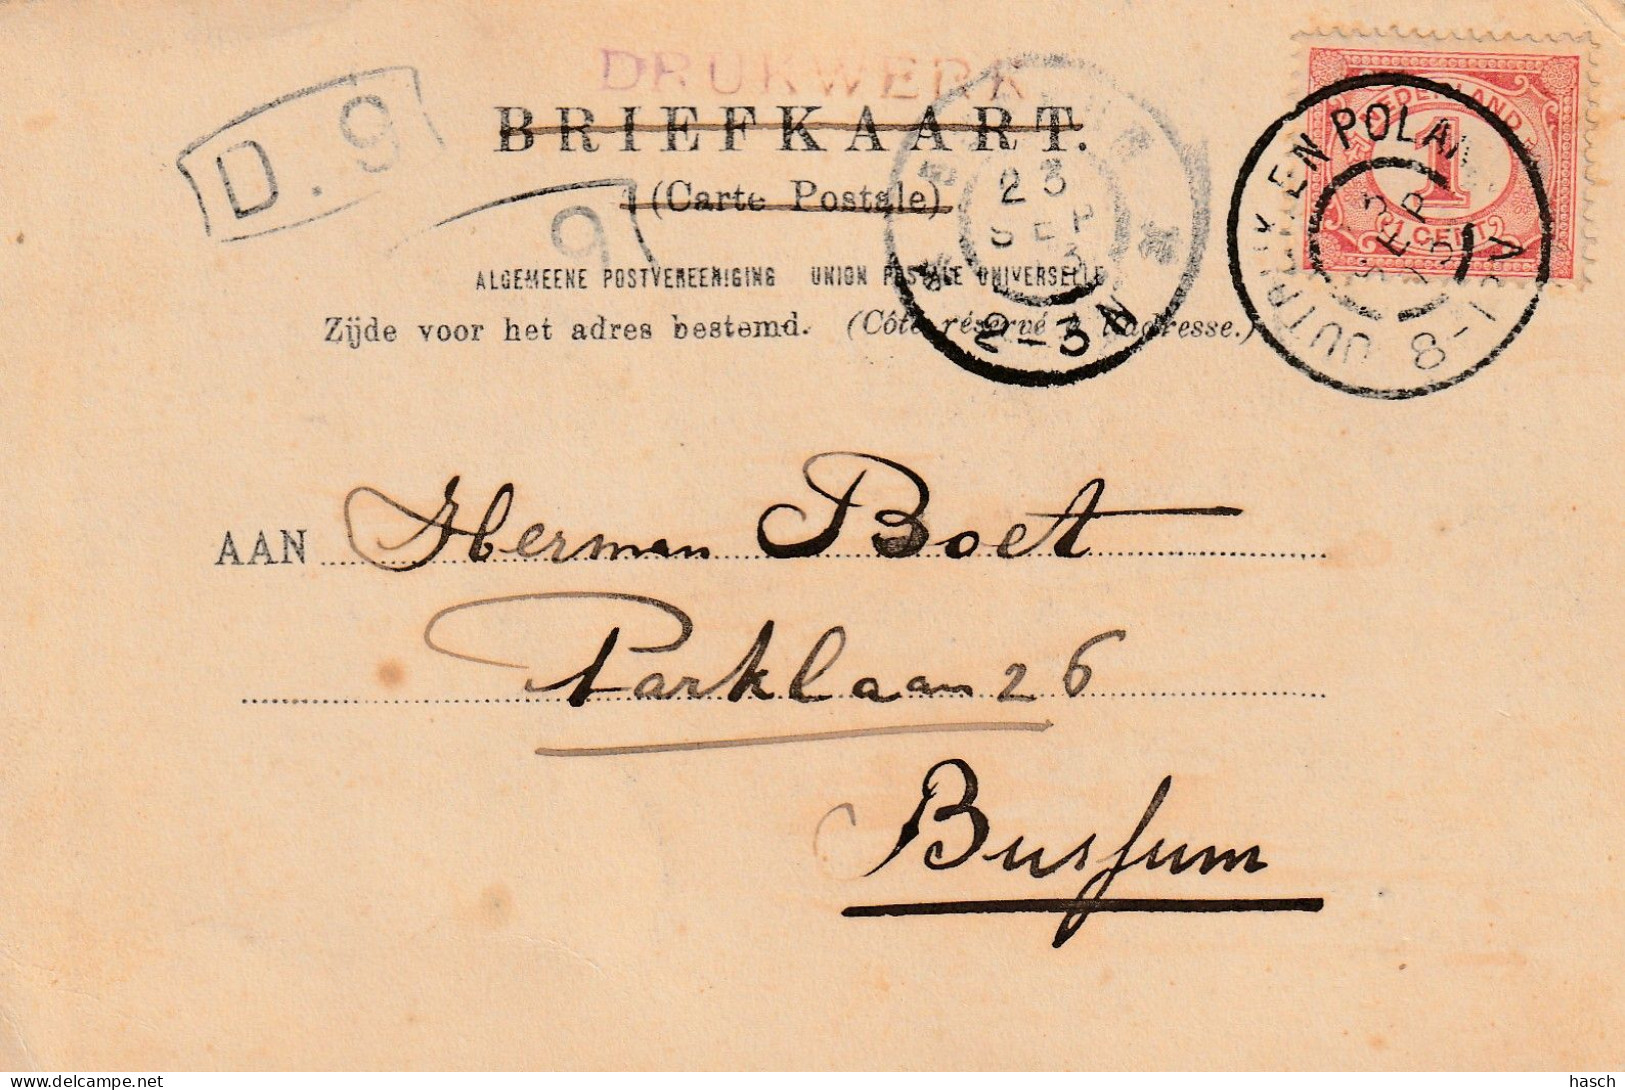 DRUKWERK
BRIEFKAART.
(Carte Postale)
ALGEMEENE POSTVEREENIGING UNION POSTALE UNIVERSELLE
Zijde voor het adres bestemd. (Côté réservé à l'adresse.)
D. 9
9
23
SEP
2-3N
NEDERLAND
1
CENT
DUTRIJK EN POLA
8-12V
AAN Herman Boet
Parklaan 26
Bussum
hasch
delcampe.net